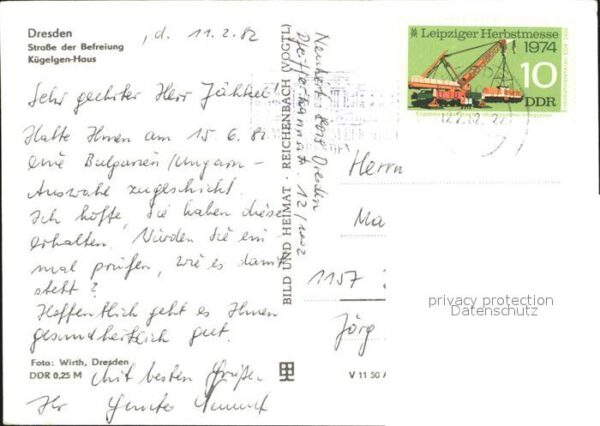 Dresden
Straße der Befreiung
Kügelgen-Haus
, d. 11.2.82
Sehr geehrter Herr
Hatte Ihnen am 15.6.82
eine Bulgarien/Ungarn-
Auswahl zugeschickt.
Ich hoffe, Sie haben diese
erhalten. Würden Sie ein
mal prüfen, wie es damit
steht?
Hoffentlich geht es Ihnen
gesundheitlich gut.
Mit besten Grüßen
Ihr Günter
Foto: Wirth, Dresden
DDR 0,25 M
BILD UND HEIMAT · REICHENBACH (VOGTL)
8023 Dresden
12/1002
V 11 50 A
Leipziger Herbstmesse
1974
10
DDR
12.2.82
Herrn
Ma
1157
Jörg
privacy protection
Datenschutz